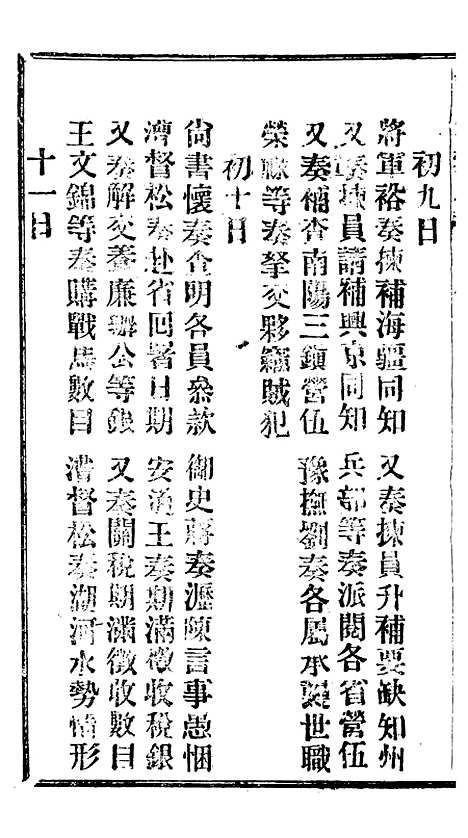 初九日
將軍裕奏揀補海疆同知　又奏揀員升補要缺知州
又奏揀員請補興京同知　兵部等奏派閱各省營伍
又奏補查南陽三鎮營伍　豫撫劉奏各屬承襲世職
榮祿等奏拏交夥竊賊犯
初十日
尙書懷奏查明各員叅款　御史蔣奏瀝陳言事愚悃
漕督松奏赴省回署日期　安漢王奏期滿徵收稅銀
又奏解交養廉辦公等銀　又奏關稅期滿徵收數目
王文錦等奏購戰馬數目　漕督松奏湖河水勢情形
十一日